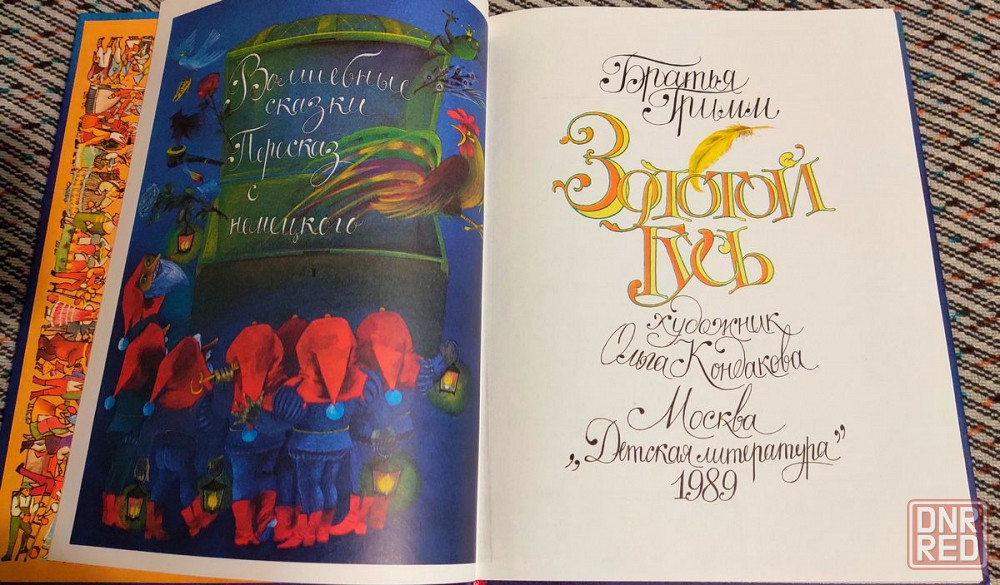 Волшебные
сказки
Пересказ
с
немецкого
Братья
Гримм
Золотой
Гусь
художник
Ольга Кондакова
Москва
„Детская литература”
1989
DNR
RED